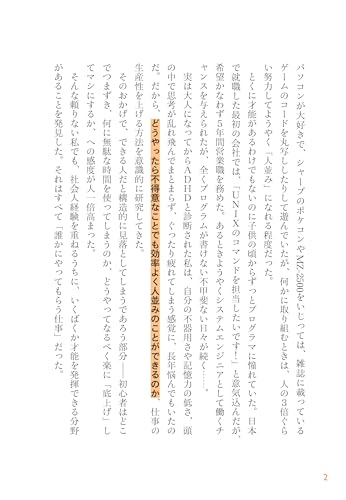 パソコンが大好きで、シャープのポケコンやMZ-2500をいじっては、雑誌に載っている
ゲームのコードを丸写ししたりして遊んでいたが、何かに取り組むときは、人の3倍ぐら
い努力してようやく「人並み」になれる程度だった。
とくに才能があるわけでもないのに子供の頃からずっとプログラマに憧れていた。日本
で就職した最初の会社では、「UNIXのコマンドを担当したいです!」と意気込んだが、
希望かなわず5年間営業職を務めた。あるときようやくシステムエンジニアとして働くチ
ャンスを与えられたが、全くプログラムが書けない不甲斐ない日々が続く……。
実は大人になってからADHDと診断された私は、自分の不器用さや記憶力の低さ、頭
の中で思考が乱れ飛んでまとまらず、ぐったり疲れてしまう感覚に、長年悩んでもいたの
だ。だから、どうやったら不得意なことでも効率よく人並みのことができるのか、仕事の
生産性を上げる方法を意識的に研究してきた。
そのおかげで、できる人だと構造的に見落としてしまうであろう部分――初心者はどこ
でつまずき、何に無駄な時間を使ってしまうのか、どうやってなるべく楽に「底上げ」し
てマシにするか、への感度が人一倍高まった。
そんな頼りない私でも、社会人経験を重ねるうちに、いくばくか才能を発揮できる分野
があることを発見した。それはすべて「誰かにやってもらう仕事」だった。
2